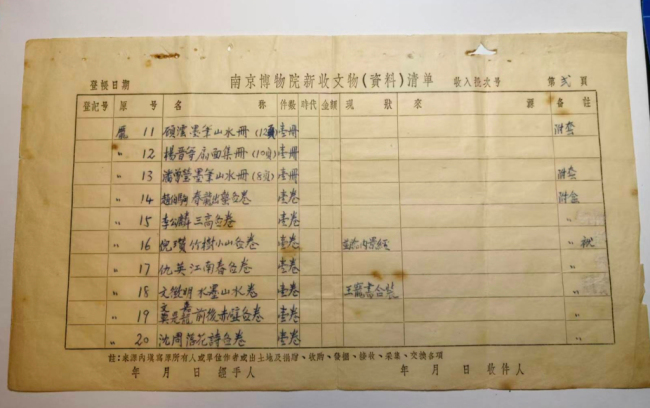 南京博物院新收文物(資料)清单
登帳日期 收入批次号 第 弍 頁
登記号 原号 名称 件數 時代 金額 现狀 來源 备註
龐 11 顾澐墨筆山水冊(12頁) 壹冊 附套
〃 12 楊晋等扇面集冊(10頁) 壹冊
〃 13 潘曾瑩墨筆山水冊(8頁) 壹冊 附套
〃 14 趙伯駒春龍出蟄合卷 壹卷 附盒
〃 15 李公麟三高合卷 壹卷 〃
〃 16 倪瓚竹樹小山合卷 壹卷 〃
〃 17 仇英江南春合卷 壹卷 〃
〃 18 文徵明水墨山水卷 壹卷 王寵書合裝 〃
〃 19 文嘉 前後赤壁合卷 壹卷 〃
〃 20 沈周落花詩合卷 壹卷 〃
註:来源内填寫原所有人或單位作者或出土地及捐贈、收購、發掘、接收、采集、交換各項
年 月 日 經手人 年 月 日 收件人